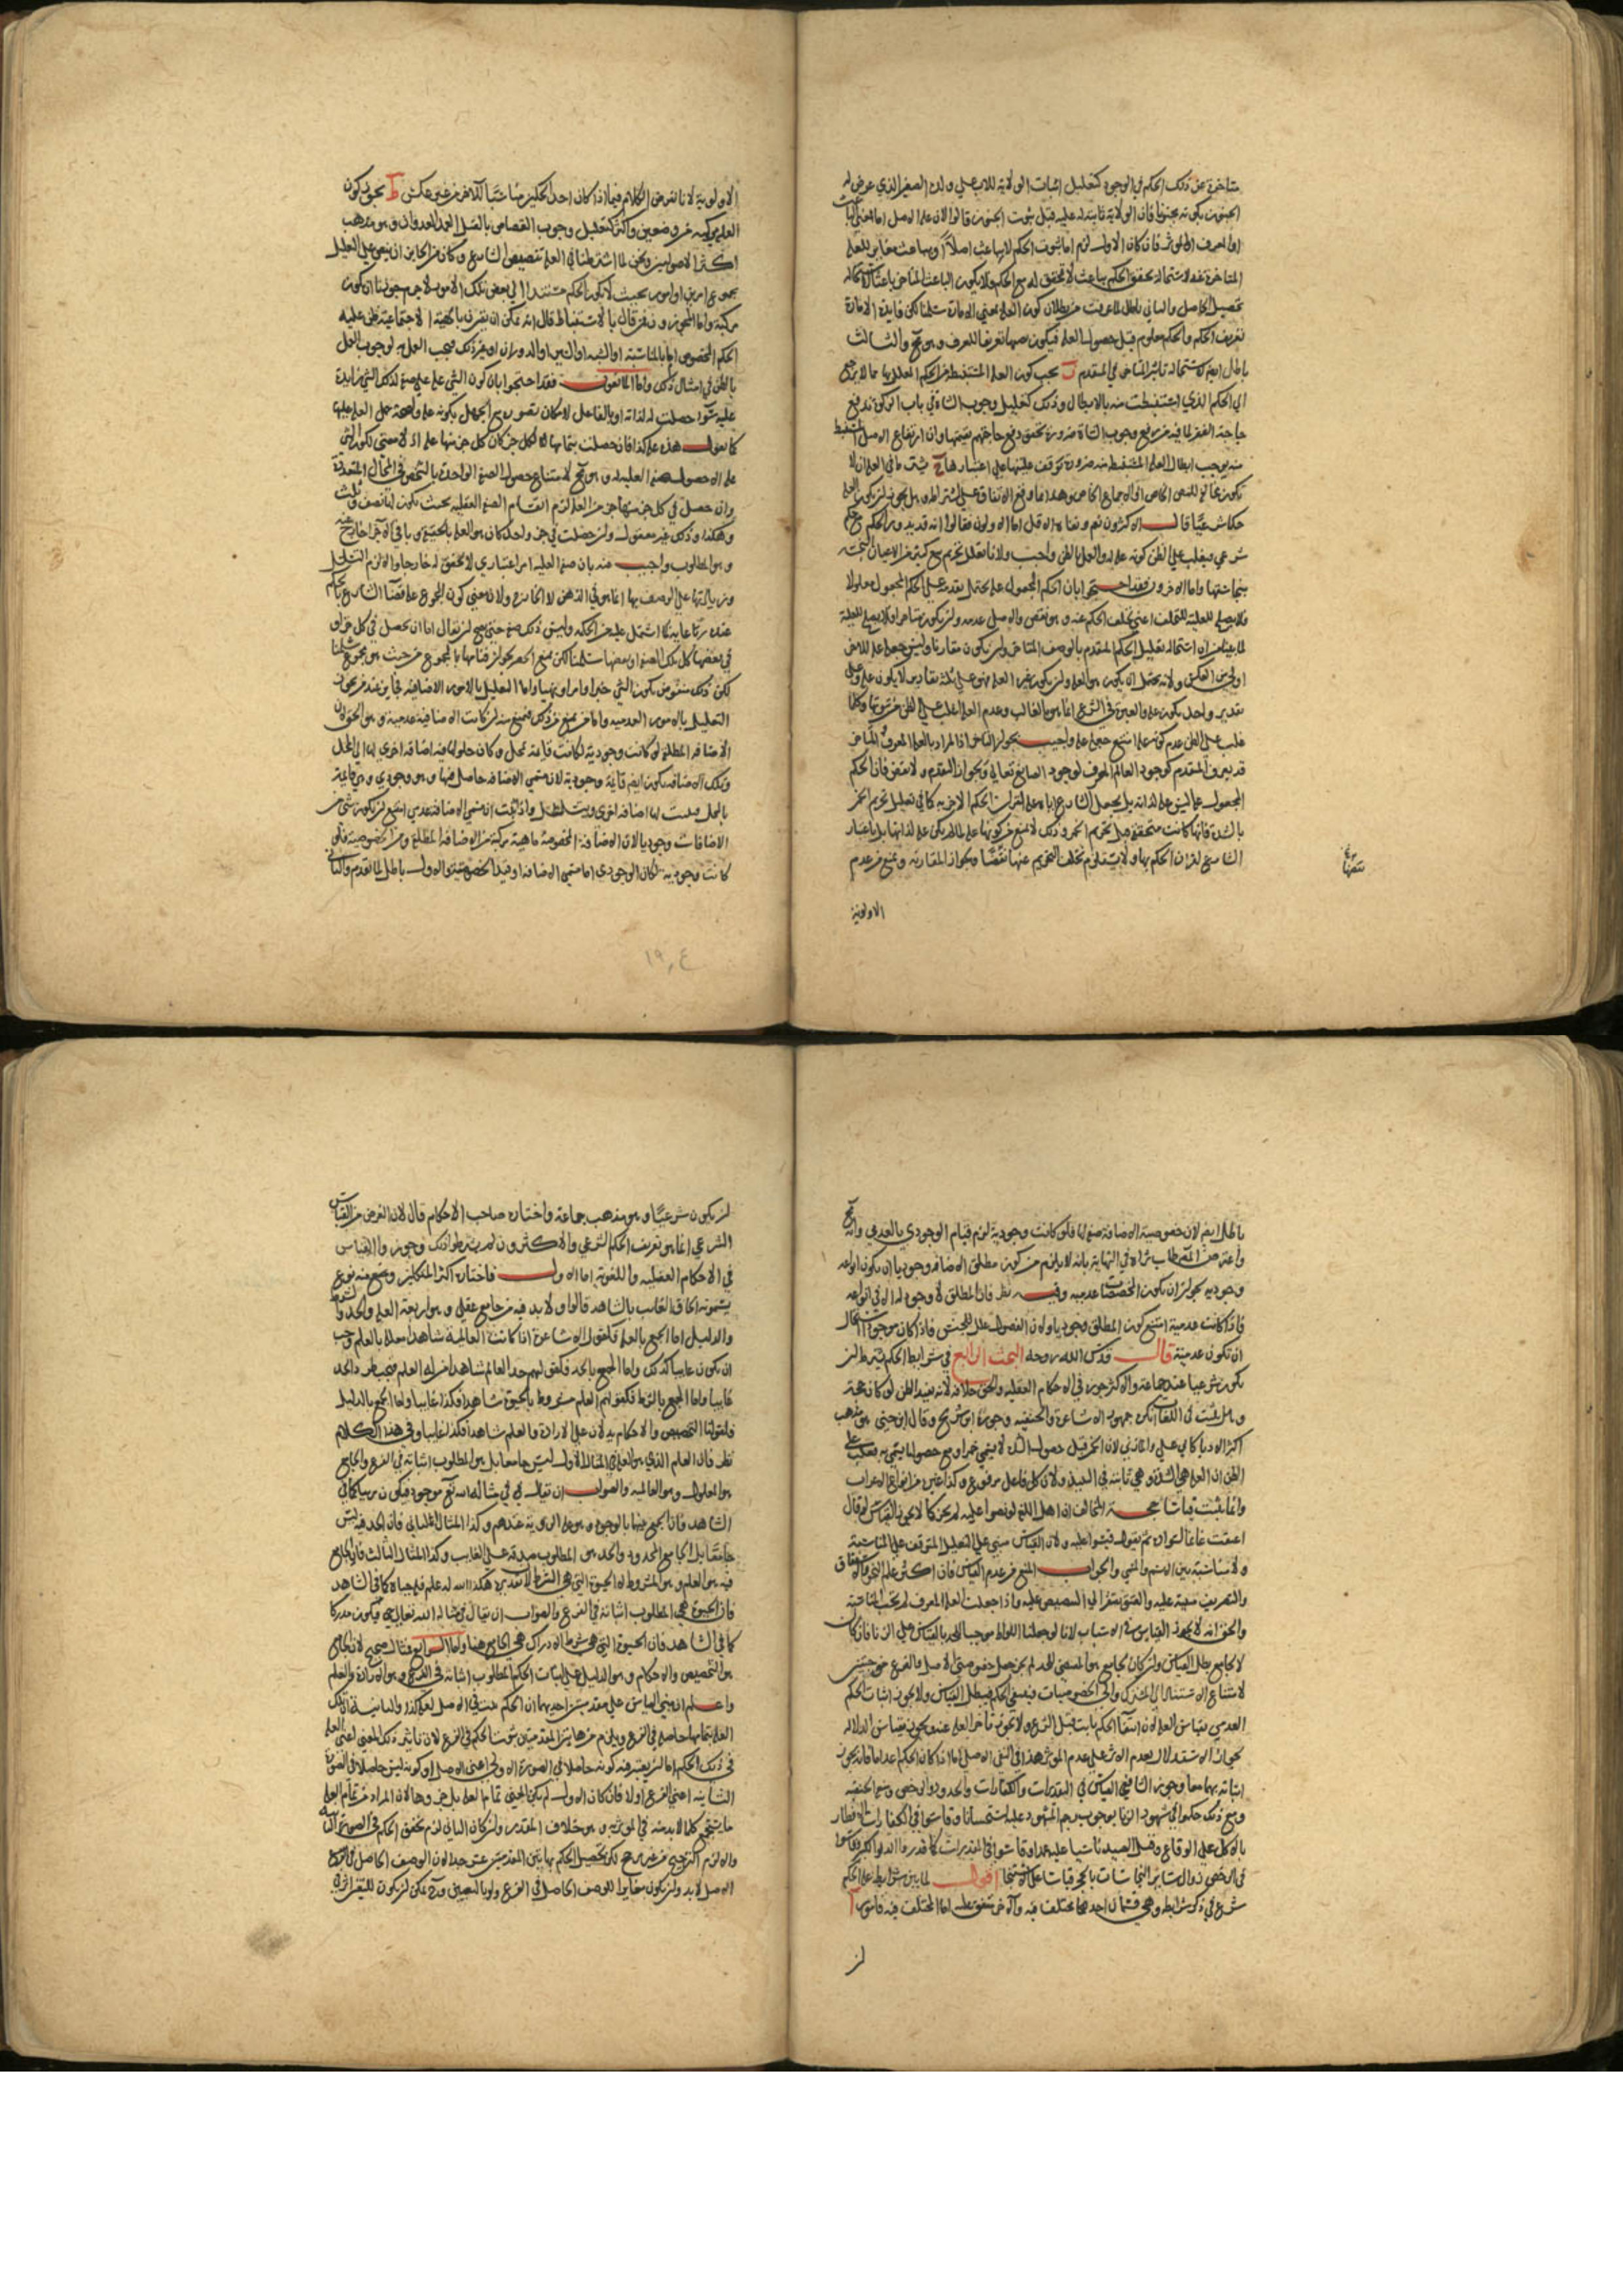 متاخرة عن ذلك الحكم في الوجود كتعليل اثبات الولاية للاب علي ولده الصغير الذي عرض له
الجنون بكونه مجنونا فان الولاية ثابتة له عليه قبل ثبوت الجنون قالوا لان علة الاصل اما
او المعرف فان كان الاول لزم اما ثبوت الحكم لا بباعث اصلا او بباعث مغاير للعلة
المتاخرة
تحصيل الحاصل والثاني باطل لما عرفت من بطلان كون العلة بمعني الامارة سلمنا لكن فايدة الامارة
تعريف الحكم والحكم معلوم قبل حصول العلة فيكون نصبها تعريفا للمعرف وهو مح والثالث
باطل ايضا لاستحالة تاثير المتاخر في المتقدم ز يجب كون العلة المستنبطة من الحكم المعلل بها مما لا يرجع
الي الحكم الذي استنبطت منه بالابطال وذلك كتعليل وجوب الشاة في باب الزكوة بدفع
حاجة الفقير لما فيه من رفع وجوب الشاة ضرورة تحقق دفع حاجتهم بقيمتها وان ارتفاع الاصل المستنبط
منه يوجب ابطال العلة المستنبطة منه ضرورة توقف عليتها علي اعتبارها ح
حكما شرعيا قال الاكثرون نعم
شرعي فيغلب علي الظن كونه علة له والعمل بالظن واجب ولانا نعلل تحريم بيع كثير من الاعيان النجسة
بنجاستها واما الاخرون فقد احتجوا بان الحكم المجعول علة يحتمل تقدمه علي الحكم المجعول معلولا
فلا يصلح للعلية للتخلف اعني تخلف الحكم عنه وهو نقض والاصل عدمه وان يكون متاخرا فلا يصلح للعلية
لما بينا من استحالة تعليل الحكم المتقدم بالوصف المتاخر وان يكون مقارنا وليس جعله علة للاخر
اولي من العكس ولانه يحتمل ان يكون هو العلة وان يكون غيره العلة فهو علي ثلثة تقادير لا يكون علة وعلي
تقدير واحد يكون علة والعبرة في الشرع انما هو بالغالب وعدم العلة اغلب علي الظن من ثبوتها وكلما
غلب علي الظن عدم كونه علة امتنع جعله علة واجيب بجواز التاخر اذا المراد بالعلة المعرف والمتاخر
قد يعرف المتقدم كوجود العالم المعرف لوجود الصانع تعالي وبجواز التقدم ولا نقض فان الحكم
المجعول علة ليس علة لذاته بل بجعل الشارع اياه علة لقران الحكم الاخر به كما في تعليل تحريم الخمر
بالشدة فانها كانت متحققة قبل تحريم الخمر وذلك لا يمنع من كونها علة لما لم يكن علة لذاتها بل باعتبار
الشارع لقران الحكم بها ولا يستلزم تخلف التحريم عنها نقضا وبجواز المقارنة ونمنع من عدم
الاولوية
الاولوية لانا نفرض الكلام فيما اذا كان احد الحكمين مناسبا للاخر من غير عكس ط يجوز كون
العلة مركبة من وصفين واكثر كتعليل وجوب القصاص بالقتل العمد العدوان وهو مذهب
اكثر الاصوليين ونحن لما اشترطنا في العلة تنصيص الشارع وكان من الجايز ان ينص علي التعليل
بمجموع امرين او امور بحيث لا يكون الحكم مستندا الي بعض تلك الامور لا جرم جوزنا ان يكون
مركبة واما المجوزون ممن قال بالاستنباط قال انه يمكن ان يقترن بالهيئة الاجتماعية ظن علية
الحكم المخصوص اما بالمناسبة او الشبه او السبر او الدوران او غير ذلك فيجب العمل به لوجوب العمل
بالظن في امثال ذلك واما المانعون فقد احتجوا بان كون الشي علة صفة لذلك الشي زايدة
عليه سواء حصلت له لذاته او بالفاعل لامكان تصوره مع الجهل بكونه علة ولصحة حمل العلة عليها
كما نقول هذه علة لكذا فان حصلت بتمامها لكل جزء كان كل جزء منها علة اذ لا معني لكون الشي
علة الا حصول صفة العلية له وهو مح لامتناع حصول الصفة الواحدة بالشخص في المحال المتعددة
وان حصل في كل جزء منها جزء من العلة لزم انقسام الصفة العقلية بحيث يكون لها نصف وثلث
وهكذا وذلك غير معقول وان حصلت في جزء واحد كان هو العلة بالحقيقة وباقي الاجزاء خارج عنه
وهو المطلوب واجيب منه بان صفة العلية امر اعتباري لا تحقق له خارجا والا لزم التسلسل
التعليل بالامور العدمية واما من يمنع من ذلك فيمنع منه ان كانت الاضافية عدمية وهو الحق لان
الاضافة المطلقة لو كانت وجودية لكانت قايمة بمحل وكان حلولها فيه اضافة اخري لها الي المحل
وتلك الاضافة يكون ايضا قايمة وجودية لان مسمي الاضافة حاصل فيها وهو وجودي وهي قايمة
بالمحل فلها اضافة اخري ويتسلسل واذا ثبت ان مسمي الاضافة عدمي امتنع ان يكون شي من
الاضافات وجوديا لان الاضافة المخصوصة ماهية مركبة من الاضافة المطلقة ومن الخصوصية فلو
كانت وجودية لكان الوجودي اما مسمي الاضافة او قيد الخصوصية والاول باطل لما تقدم والثاني
١٩٠٤
باطل ايضا لان خصوصية الاضافة صفة لها فلو كانت وجودية لزم قيام الوجودي بالعدمي وانه مح
واعترض المص طاب ثراه في النهاية بانه لا يلزم من كون مطلق الاضافة وجوديا ان يكون انواعه
وجودية لجواز ان يكون المخصصات عدمية وفيه نظر فان المطلق لا وجود له الا في انواعه
فاذا كانت عدمية امتنع كون المطلق وجوديا ولان الفصول علل للجنس فاذا كان موجودا استحال
ان تكون عدمية قال قدس الله روحه البحث الرابع في شرايط الحكم يشترط ان
يكون شرعيا عند جماعة والاكثر جوزه في الاحكام العقلية والحق خلافه لانه يفيد الظن لو كان حجة
وهل يثبت في اللغات انكره جمهور الاشاعرة والحنفية وجوزه ابن سريج وقال ابن جني هو مذهب
اكثر الادبا كابي علي والمازني لان الخمر قبل حصول الشدة لا يسمي خمرا ومع حصولها يسمي به فيغلب علي
الظن ان العلة هي الشدة وهي ثابتة في النبيذ ولان كل فاعل مرفوع وكذا غيره من انواع الاعراب
وانما يثبت قياسا حجة المخالف ان اهل اللغة لو نصوا عليه لم يجز كما لا يجوز القياس لو قال
اعتقت غانما لسواده ثم يقول فقيسوا عليه ولان القياس مبني علي التعليل المتوقف علي المناسبة
ولا مناسبة بين الاسم والمسمي والجواب المنع من عدم القياس فان اكثر علم النحو والاشتقاق
والتصريف مبنية عليه والعتق يفتقر الي التنصيص عليه واذا جعلت العلة المعرف لم يجب المناسبة
والحق انه لا يجوز القياس في الاسباب لانا لو جعلنا اللواط موجبا للحد بالقياس علي الزنا فان كان
لا لجامع بطل القياس وان كان لجامع هو المقتضي للحد لم يجز جعل خصوصيتي الاصل والفرع موجبتين
لامتناع الاستناد الي المشترك والي الخصوصيات فينتفي الحكم فيبطل القياس ولا يجوز اثبات الحكم
العدمي بقياس العلة لان انتفاء الحكم ثابت قبل الشرع ولا يجوز تاخر العلة عنه ويجوز بقياس الدلالة
بجواز الاستدلال بعدم الاثر علي عدم المؤثر هذا في النفي الاصلي اما اذا كان الحكم اعداما فانه يجوز
اثباته بهما معا وجوز الشافعي القياس في التقديرات والكفارات والحدود والرخص ومنع الحنفية
ومع ذلك حكموا في شهود الزنا بوجوب رجم المشهود عليه استحسانا وقاسوا في الكفارات الافطار
بالاكل علي الوقاع وقتل الصيد ناسيا عليه عمدا وقاسوا في المقدرات كما قدروا الدلو
في الرخص زوال ساير النجاسات بالحجر قياسا علي الاستنجا اقول لما بين شرايط علة الحكم
شرع في ذكر شرايطه وهي قسمان احدهما مختلف فيه والاخر متفق عليه اما المختلف فيه فامور ا
ان
ان يكون شرعيا وهو مذهب جماعة واختاره صاحب الاحكام قال لان الغرض من القياس
الشرعي انما هو تعريف الحكم الشرعي والاكثرون لم يشترطوا ذلك وجوزوا القياس
في الاحكام العقلية واللغوية اما الاول فاختاره اكثر المتكلمين ومنع منه نوع
يسمونه الحاق الغايب بالشاهد قالوا ولا بد فيه من جامع عقلي وهو اربعة العلة والحد والشرط
والدليل اما الجمع بالعلة فكقول الاشاعرة اذا كانت العالمية شاهدا معللة بالعلم وجب
ان يكون غايبا كذلك واما الجمع بالحد فكقولهم حد العالم شاهدا من له العلم فيجب طرد الحد
غايبا واما الجمع بالشرط فكقولهم العلم مشروط بالحيوة شاهدا فكذا غايبا واما الجمع بالدليل
فكقولنا التخصيص والاحكام يدلان علي الارادة والعلم شاهدا فكذا غايبا وفي هذا الكلام
نظر فان العلم الذي هو العلة في المثال الاول ليس جامعا بل هو المطلوب اثباته في الفرع والجامع
هو المعلول وهو العالمية والصواب ان يقال في مثاله الله تع موجود فيكون مرييا كما في
الشاهد فان الجمع بينهما بالوجود وهو علة الروية عندهم وكذا المثال الثاني فان الحد فيه ليس
جامعا بل الجامع المحدود والحد هو المطلوب صدقه علي الغايب وكذا المثال الثالث فان الجامع
فيه هو العلم وهو المشروط لا الحيوة التي هي الشرط لان تقديره هكذا الله له علم فله حياة كما في الشاهد
فان الحيوة هي المطلوب اثباته في الفرع والصواب ان يقال في مثاله الله تعالي حي فيكون مدركا
كما في الشاهد فان الحيوة التي هي شرط الادراك هي الجامع هنا واما الرابع فمثال صحيح لان الجامع
هو التخصيص والاحكام وهو الدليل علي اثبات الحكم المطلوب اثباته في الفرع وهو الارادة والعلم
واعلم ان مبني القياس علي مقدمتين احديهما ان الحكم ثبت في الاصل لعلة كذا والثانية ان تلك
العلة بتمامها حاصلة في الفرع ويلزم من هاتين المقدمتين ثبوت الحكم في الفرع لان تاثير ذلك المعني اعني العلة
في ذلك الحكم اما ان يعتبر فيه كونه حاصلا في الصورة الاولي اعني الاصل او كونه ليس حاصلا في الصورة
الثانية اعني الفرع اولا فان كان الاول لم يكن المعني تمام العلة بل جزءها لان المراد من تمام العلة
ما يستجمع كلما لا بد منه في المؤثرية وهو خلاف المقدر وان كان الثاني لزم تحقق الحكم في الصورة الثانية
والا لزم الترجيح من غير مرجح لكن تحصيل الحكم بهاتين المقدمتين عسر جدا لان الوصف الحاصل في
الاصل لا بد وان يكون مغايرا للوصف الحاصل في الفرع ولو بالتعيين